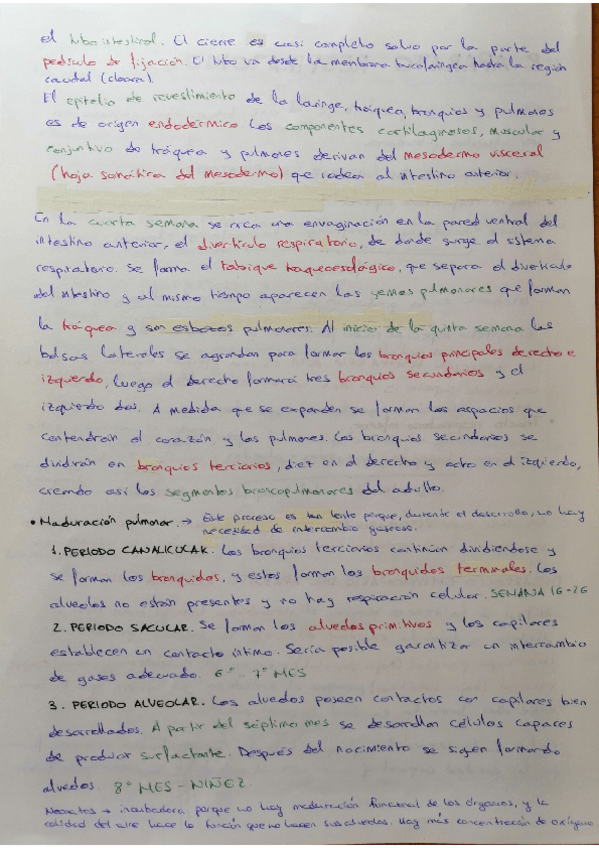 el tubo intestinal. El cierre es casi completo salvo por la parte del
pedículo de fijación. El tubo va desde la membrana bucofaríngea hasta la región
caudal (cloaca).
El epitelio de revestimiento de la laringe, tráquea, bronquios y pulmones
es de origen endodérmico. Los componentes cartilaginosos, muscular y
conjuntivo de tráquea y pulmones derivan del mesodermo visceral
(hoja somática del mesodermo) que rodea al intestino anterior.
En la cuarta semana se crea una envaginación en la pared ventral del
intestino anterior, el divertículo respiratorio, de donde surge el sistema
respiratorio. Se forma el tabique traqueoesofágico, que separa el divertículo
del intestino y al mismo tiempo aparecen las yemas pulmonares que forman
la tráquea y son esbozos pulmonares. Al inicio de la quinta semana las
bolsas laterales se agrandan para formar los bronquios principales derecho e
izquierdo, luego el derecho formará tres bronquios secundarios y el
izquierdo dos. A medida que se expanden se forman los espacios que
contendrán el corazón y los pulmones. Los bronquios secundarios se
dividirán en bronquios terciarios, diez en el derecho y ocho en el izquierdo,
creando así los segmentos broncopulmonares del adulto.
• Maduración pulmonar. → Este proceso es tan lento porque, durante el desarrollo, no hay
necesidad de intercambio gaseoso.
1. PERIODO CANALICULAR. Los bronquios terciarios continúan dividiéndose y
se forman los bronquiolos, y estos forman los bronquiolos terminales. Los
alveolos no están presentes y no hay respiración celular. SEMANA 16-26
2. PERIODO SACULAR. Se forman los alveolos primitivos y los capilares
establecen en contacto íntimo. Sería posible garantizar un intercambio
de gases adecuado. 6º - 7º MES
3. PERIODO ALVEOLAR. Los alveolos poseen contactos con capilares bien
desarrollados. A partir del séptimo mes se desarrollan células capaces
de producir surfactante. Después del nacimiento se siguen formando
alveolos. 8º MES - NIÑEZ
Neonatos → incubadora porque no hay maduración funcional de los órganos, y la
calidad del aire hace la función que no hacen sus alveolos. Hay más concentración de oxígeno